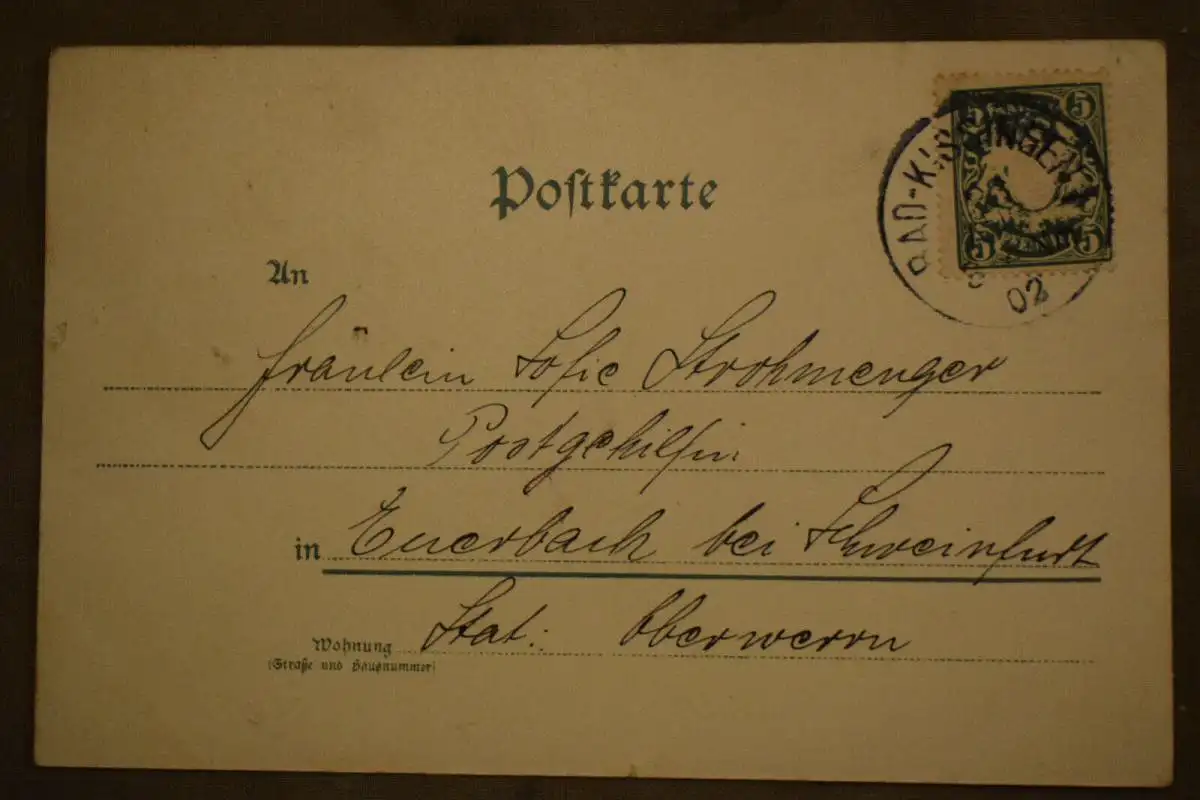 5 5
BAD-KISSINGEN
5 5
02
Postkarte
An
Fräulein Sofie Strohmenger
Postgehilfin
in Euerbach bei Schweinfurt
Wohnung Stat: Oberwerrn
(Straße und Hausnummer)